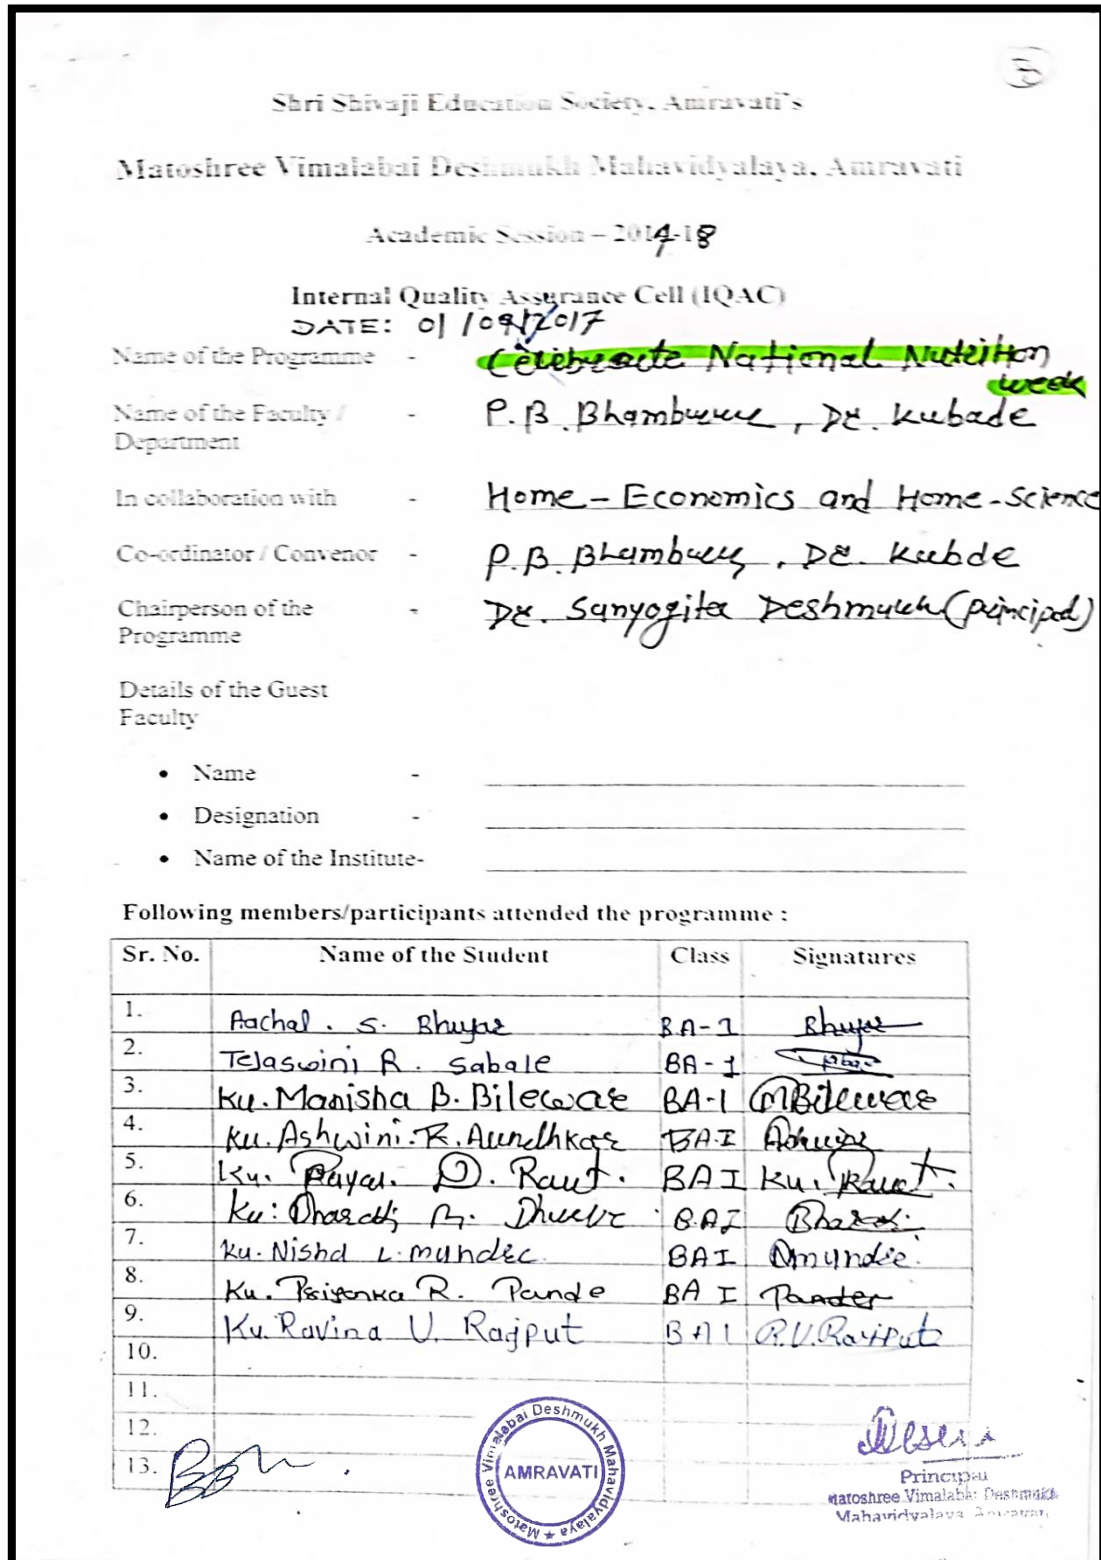 Shri Shivaji Education Society, Amravati's
Matoshree Vimalabai Deshmukh Mahavidyalaya, Amravati
Academic Session – 2017-18
Internal Quality Assurance Cell (IQAC)
DATE: 01/09/2017
Name of the Programme - Celebrate National Nutrition
week
Name of the Faculty / - P.B. , Dr. Kubade
Department
In collaboration with - Home-Economics and Home-Science
Co-ordinator / Convenor - P.B. , Dr. Kubde
Chairperson of the - Dr. Sanyogita Deshmukh (principal)
Programme
Details of the Guest
Faculty
• Name -
• Designation -
• Name of the Institute-
Following members/participants attended the programme :
Sr. No. Name of the Student Class Signatures
1. Aachal . S. Bhuyar BA-1 Bhuyar
2. Tejaswini R. Sabale BA-1
3. Ku. Manisha B. Bilewar BA-I MBilewar
4. Ku. Ashwini. R. Aundhkar BA.I
5. Ku. Payal. D. Raut. BA I Ku. Raut.
6. Ku: B.A I
7. Ku. Nisha L. BA I
8. Ku. Priyanka R. Pande BA I
9. Ku. Ravina U. Rajput BA I R.U. Rajput
10.
11.
12.
13.
Matoshree Vimalabai Deshmukh Mahavidyalaya ★
AMRAVATI
Principal
Matoshree Vimalabai Deshmukh
Mahavidyalaya Amravati